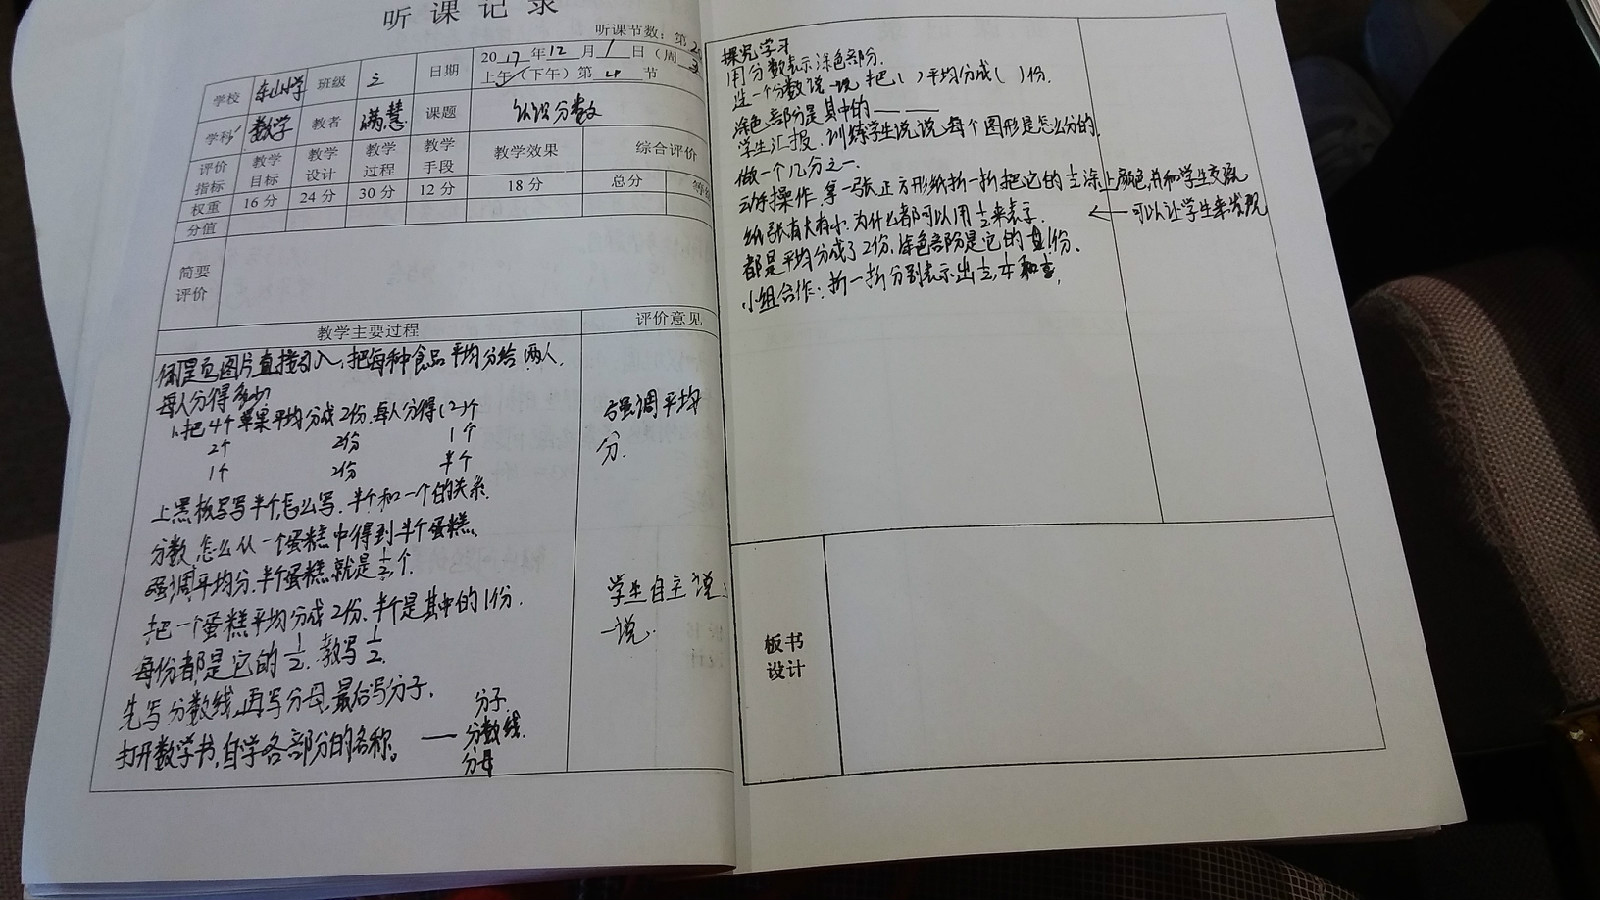 听课记录
听课节数：第2
学校 东山小学 班级 三 日期 2017年12月1日（周3
上午（下午）第 节
学科 数学 教者 满慧 课题 认识分数
评价指标 教学目标 教学设计 教学过程 教学手段 教学效果 综合评价
权重 16分 24分 30分 12分 18分 总分 等级
分值
简要评价
教学主要过程 评价意见
图片直接引入，把每种食品平均分给两人.
每人分得多少?
1、把4个苹果平均分成2份.每人分得(2)个
2个 2份 1个
1个 2份 半个
强调平均分.
上黑板写写半个,怎么写.半个和一个的关系.
分数,怎么从一个蛋糕中得到半个蛋糕.
强调平均分.半个蛋糕就是1/2个.
把一个蛋糕平均分成2份.半个是其中的1份.
学生自主说一说.
每份都是它的1/2.教写1/2.
先写分数线,再写分母,最后写分子.
打开数学书,自学各部分的名称。
分子
— 分数线
分母
探究学习
用分数表示涂色部分.
选一个分数说一说 把( )平均分成( )份.
涂色部分是其中的— —
学生汇报.训练学生说说每个图形是怎么分的.
做一个几分之一.
动手操作.拿一张正方形纸折一折把它的1/2涂上颜色,并和学生交流
纸张有大有小.为什么都可以用1/2来表示.
←可以让学生来发现
都是平均分成了2份.涂色部分是它的1份.
小组合作：折一折分别表示出
板书设计